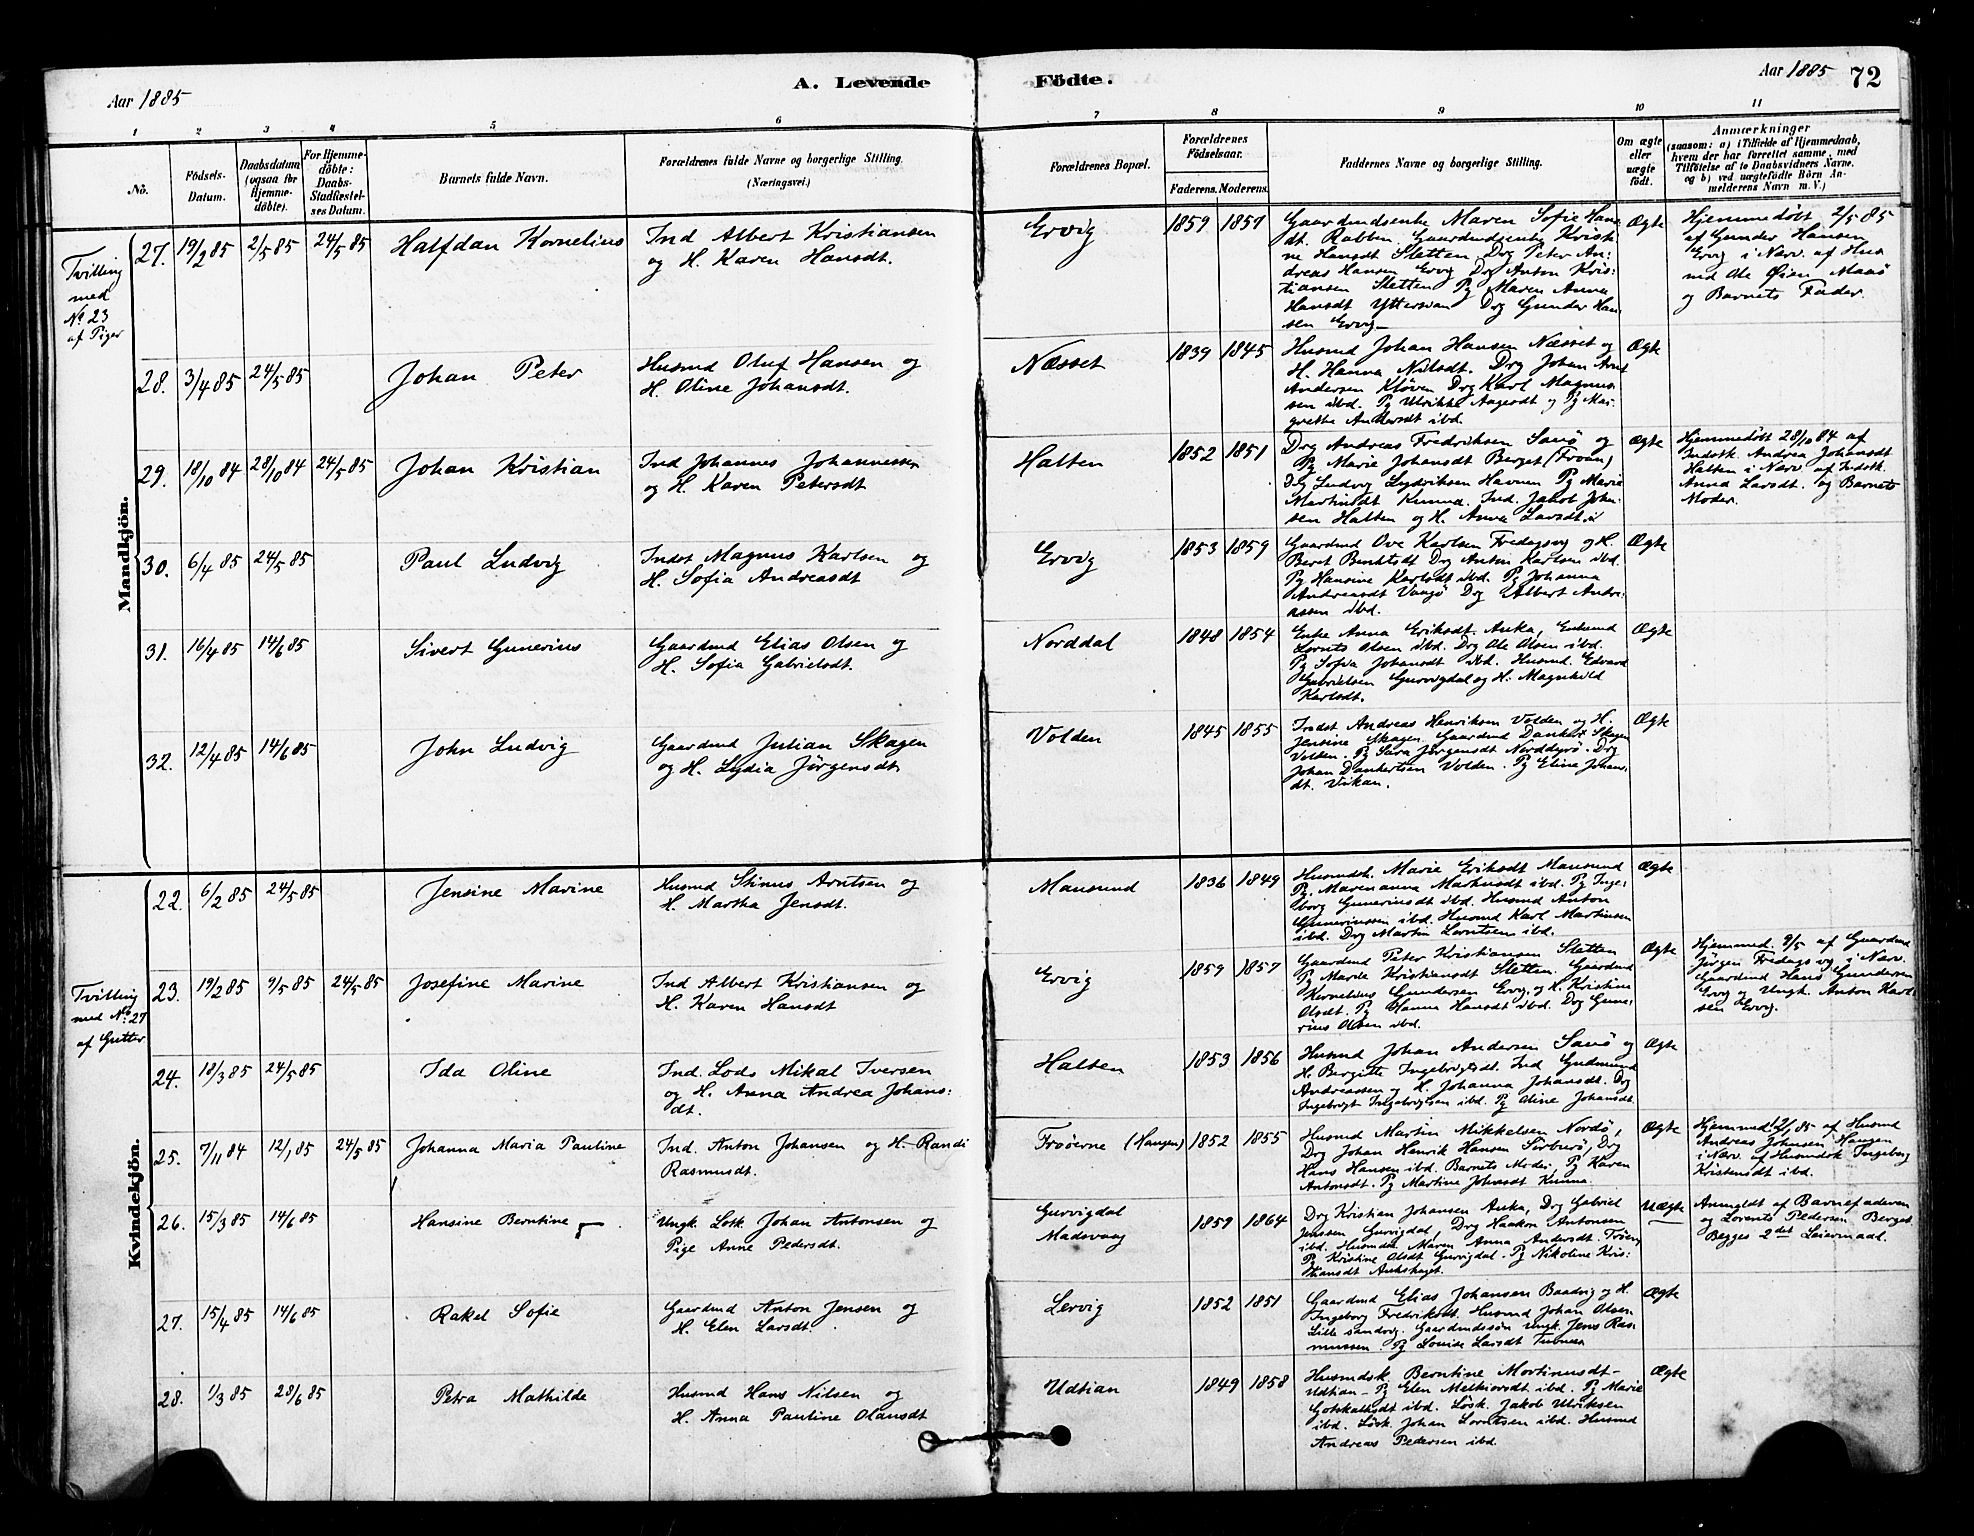 Aar 1885
A. Levende
Födte.
Aar 1885
72
1 2 3 4 5 6 7 8 9 10 11
No.
Födsels-
Datum.
Daabsdatum
(ogsaa for
Hjemme-
döbte).
For Hjemme-
döbte:
Daabs-
Stadfæstel-
ses Datum.
Barnets fulde Navn.
Forældrenes fulde Navne og borgerlige Stilling.
(Næringsvei.)
Forældrenes Bopæl.
Forældrenes
Födselsaar.
Faderens. Moderens.
Faddernes Navne og borgerlige Stilling.
Om ægte
eller
uægte
født.
Anmærkninger
(saasom: a) i Tilfælde af Hjemmedaab,
hvem der har forrettet samme, med
Tilföielse af to Daabsvidners Navne,
og b) ved uægtefödte Börn An-
melderens Navn m. V.)
Mandkjön.
Tvilling
med
No 23
af Piger
27. 19/2 85 2/5 85 24/5 85 Halfdan Kornelius
Ind Albert Kristiansen
og H. Karen Hansdt.
Ervig 1859 1857
Gaardmdsenke Maren Sofie Han
dt. Rabben Gaardmdsenke Kristi
ne Hansdt Sletten Drg Peter An:
dreas Hansen Ervig Drg Anton Kris:
tiansen Sletten Pg Maren Anna
Hansdt Yttersian Drg Gunder Han
sen Ervig
Ægte
Hjemmedøbt 2/5 85
af Gunder Hansen
Ervig i Nærv. af Hus
md Ole Øien Maasø
og Barnets Fader.
28. 3/4 85 24/5 85 Johan Peter
Husmd Oluf Hansen og
H. Oline Johansdt.
Næsset 1839 1845
Husmd Johan Hansen Næsset og
H. Hanna Nilsdt. Drg Johan Arnt
Andersen Kløven Drg Karl Magnus
sen ibd. Pg Ulrikke Aagesdt og Pg Mar
grethe Andersdt ibd.
Ægte
29. 18/10 84 28/10 84 24/5 85 Johan Kristian
Ind Johannes Johannessen
og H. Karen Petersdt
Halten 1852 1851
Drg Andreas Fredriksen Sauø og
Pg Marie Johansdt Berget (Froan)
Drg Ludvig Lydriksen Havnen Pg Marie
Martinsdt Kunna. Ind. Jakob John
sen Halten og H. Anna Larsdt
Ægte
Hjemmedøbt 28/10 84 af
Indstk. Andrea Johansdt
Halten i Nærv. af Indstk.
Anna Larsdt. og Barnets
Moder.
30. 6/4 85 24/5 85 Paul Ludvig
Indst Magnus Karlsen og
H. Sofia Andreasdt
Ervig 1853 1859
Gaardmd Ove Karlsen Fredagsvg og H.
Beret Berntsdt Drg Anton Karlsen ibd.
Pg Hansine Karlsdt ibd. Pg Johanna
Andreasdt Vaagø Drg Albert Andre:
assen ibd.
Ægte
31. 16/4 85 14/6 85 Sivert Gunerius
Gaardmd Elias Olsen og
H. Sofia Gabrielsdt.
Norddal 1848 1854
Enke Anna Eriksdt. Anka, Enkemd
Lornts Olsen ibd. Drg Ole Olsen ibd.
Pg Sofia Johansdt ibd. Husmd. Edvard
Gabrielsen Gurvigdal og H. Magnhild
Karlsdt.
Ægte
32. 12/4 85 14/6 85 John Ludvig
Gaardmd Julian Skagen
og H. Lydia Jørgensdt.
Volden 1845 1855
Indst Andreas Henriksen Volden og H.
Jensine Skagen. Gaardmd Dankert Skagen
Volden. Pg Sara Jørgensdt Norddyrø. Drg
Johan Dankertsen Volden. Pg Eline Johan
dt. Vikan.
Ægte
Kvindekjön.
22. 6/2 85 24/5 85 Jensine Marine
Husmd Stinus Arntsen og
H. Martha Jensdt.
Mausund 1836 1849
Husmdsk. Marie Eriksdt Mausund
Pg. Maren anna Martinsdt ibd. Pg Inge:
borg Gunerinsdt ibd. Husmd Anton
Gunerinssen ibd. Husmd Karl Martinsen
ibd. Drg Martin Lorntsen ibd.
Ægte
Tvilling
med No: 27
af Gutter
23. 19/2 85 9/5 85 24/5 85 Josefine Marine
Ind Albert Kristiansen og
H. Karen Hansdt
Ervig 1859 1857
Gaardmd Peter Kristiansen Sletten
Pg Marde Kristiansdt Sletten. Gaardmd
Kornelius Gundersen Ervg. og H. Kristine
Olsdt. Pg Hanna Hansdt ibd. Drg Gune:
rius Olsen ibd.
Ægte
Hjemmed. 9/5 af Gaardmd
Jørgen Fredagsvg i Nærv.
Gaardmd Hans Gundersen
Ervg og Ungk. Anton Karl
sen Ervg.
24. 18/3 85 24/5 85 Ida Oline
Ind. Lods Mikal Iversen
og H. Anna Andrea Johans:
dt.
Halten 1853 1856
Husmd Johan Andersen Sauø og
H. Bergitte Ingebrigtsdt. Ind Gudmund
Andreassen og H. Johanna Johansdt. Drg
Ingebrigt Ingebrigtsen ibd. Pg Oline Johansdt.
Ægte
25. 7/11 84 12/1 85 24/5 85 Johanna Maria Pauline
Ind. Anton Johansen og H. Randi
Rasmusdt.
Froøerne (Haugen) 1852 1855
Husmd Martin Mikkelsen Nordø,
Drg Johan Henrik Hansen Sörburø, Drg
Hans Hansen ibd. Barnets Moder, Pg Karen
Antonsdt. Pg Martine Johnsdt Kunna
Ægte
Hjemmed 12/1 85 af Husmd
Andreas Johnsen Haugen
i Nærv. af Husmdsk Ingeborg
Kristensdt ibd.
26. 15/3 85 14/6 85 Hansine Berntine
Ungk. Losk Johan Antonsen og
Pige Anne Pedersdt.
Gurvigdal
Madsvaag 1859 1864
Drg Kristian Johansen Anka, Drg Gabriel
Jenssen Gurvigdal, Drg Haakon Antonsen
ibd. Husmdsk Maren Anna Andersdt.
Pg Kristine Olsdt Gurvigdal. Pg Nikoline Kris:
tiansdt Ankshaget.
Uægte
Anmeldt af Barnefaderen
og Lorents Pedersen Berget
Begges 2det Leiermaal.
27. 15/4 85 14/6 85 Rakel Sofie
Gaardmd Anton Jensen og
H. Elen Larsdt.
Lervig 1852 1851
Gaardmd Elias Johansen Baadvig og H.
Ingeborg Fredriksdt. Husmd Johan Olsen
Lille sandvg. Gaardmdssøn Ungk. Jens Ras
mussen. Pg Louise Larsdt Tubnes
Ægte
28. 1/3 85 28/6 85 Petra Mathilde
Husmd Hans Nilsen og
H. Anna Pauline Olausdt
Udtian 1849 1858
Husmdsk Berntine Mortinusdt
Udtian - Pg Elen Melkiorsdt ibd. Pg Marie
Gotskalksdt ibd. Løsk. Jakob Ulriksen
ibd. Løsk. Johan Lorntsen ibd. Husmd
Andreas Pedersen ibd.
Ægte